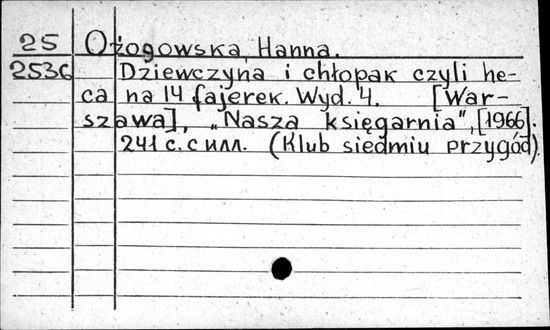 25 Ożogowska, Hanna.
2536 Dziewczyna i chłopak czyli he-
ca na 14 fajerek. Wyd. 4. [War-
szawa], „Nasza księgarnia", [1966].
241 с. с илл. (Klub siedmiu przygód).